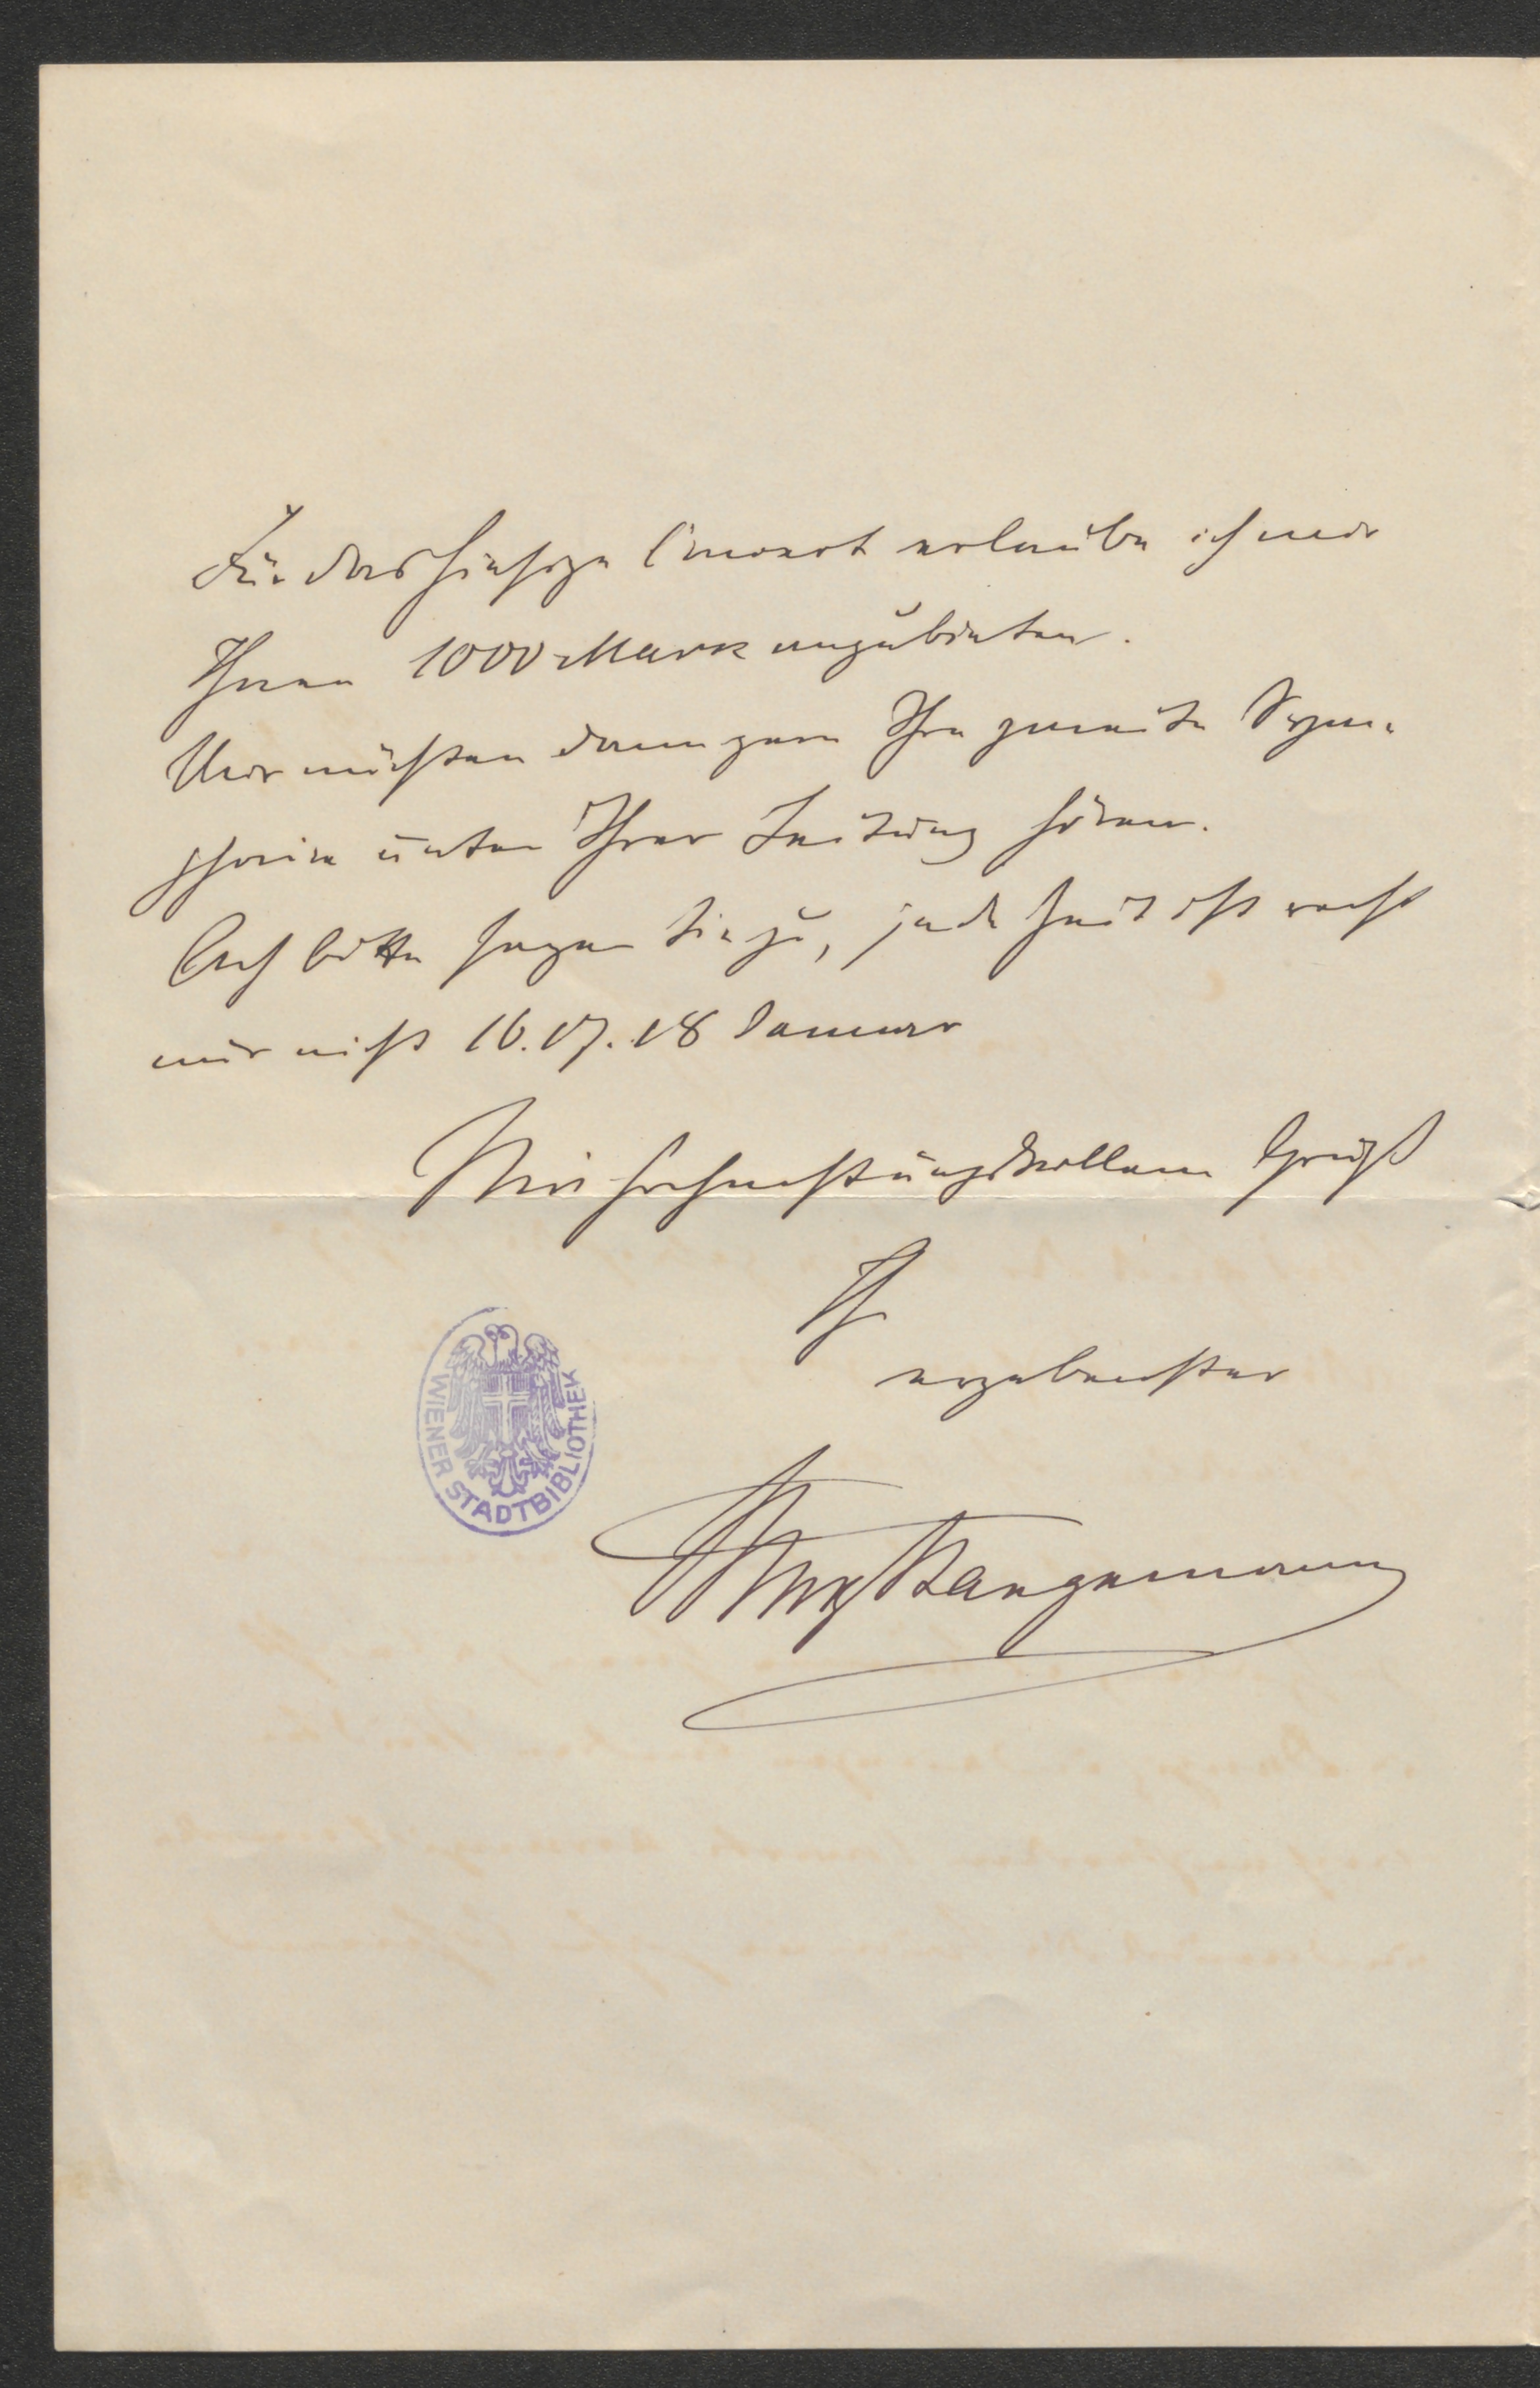 Für das hiesige Concert erlaube ich mir
Ihnen 1000 Mark anzubieten.
Wir möchten dann gern Ihre zweite Sym-
phonie unter Ihrer Leitung hören.
Ach bitte sagen Sie zu, jede Zeit ist recht
nur nicht 16. 17. 18 Januar
Mit hochachtungsvollem Gruß
Ihr
ergebenster
WIENER STADTBIBLIOTHEK